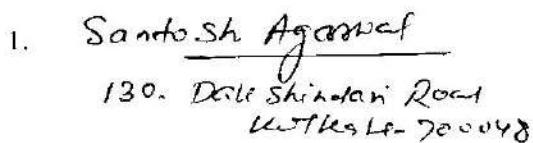 1. Santosh Agarwal
130. Dakshindari Road
Kolkata-700048